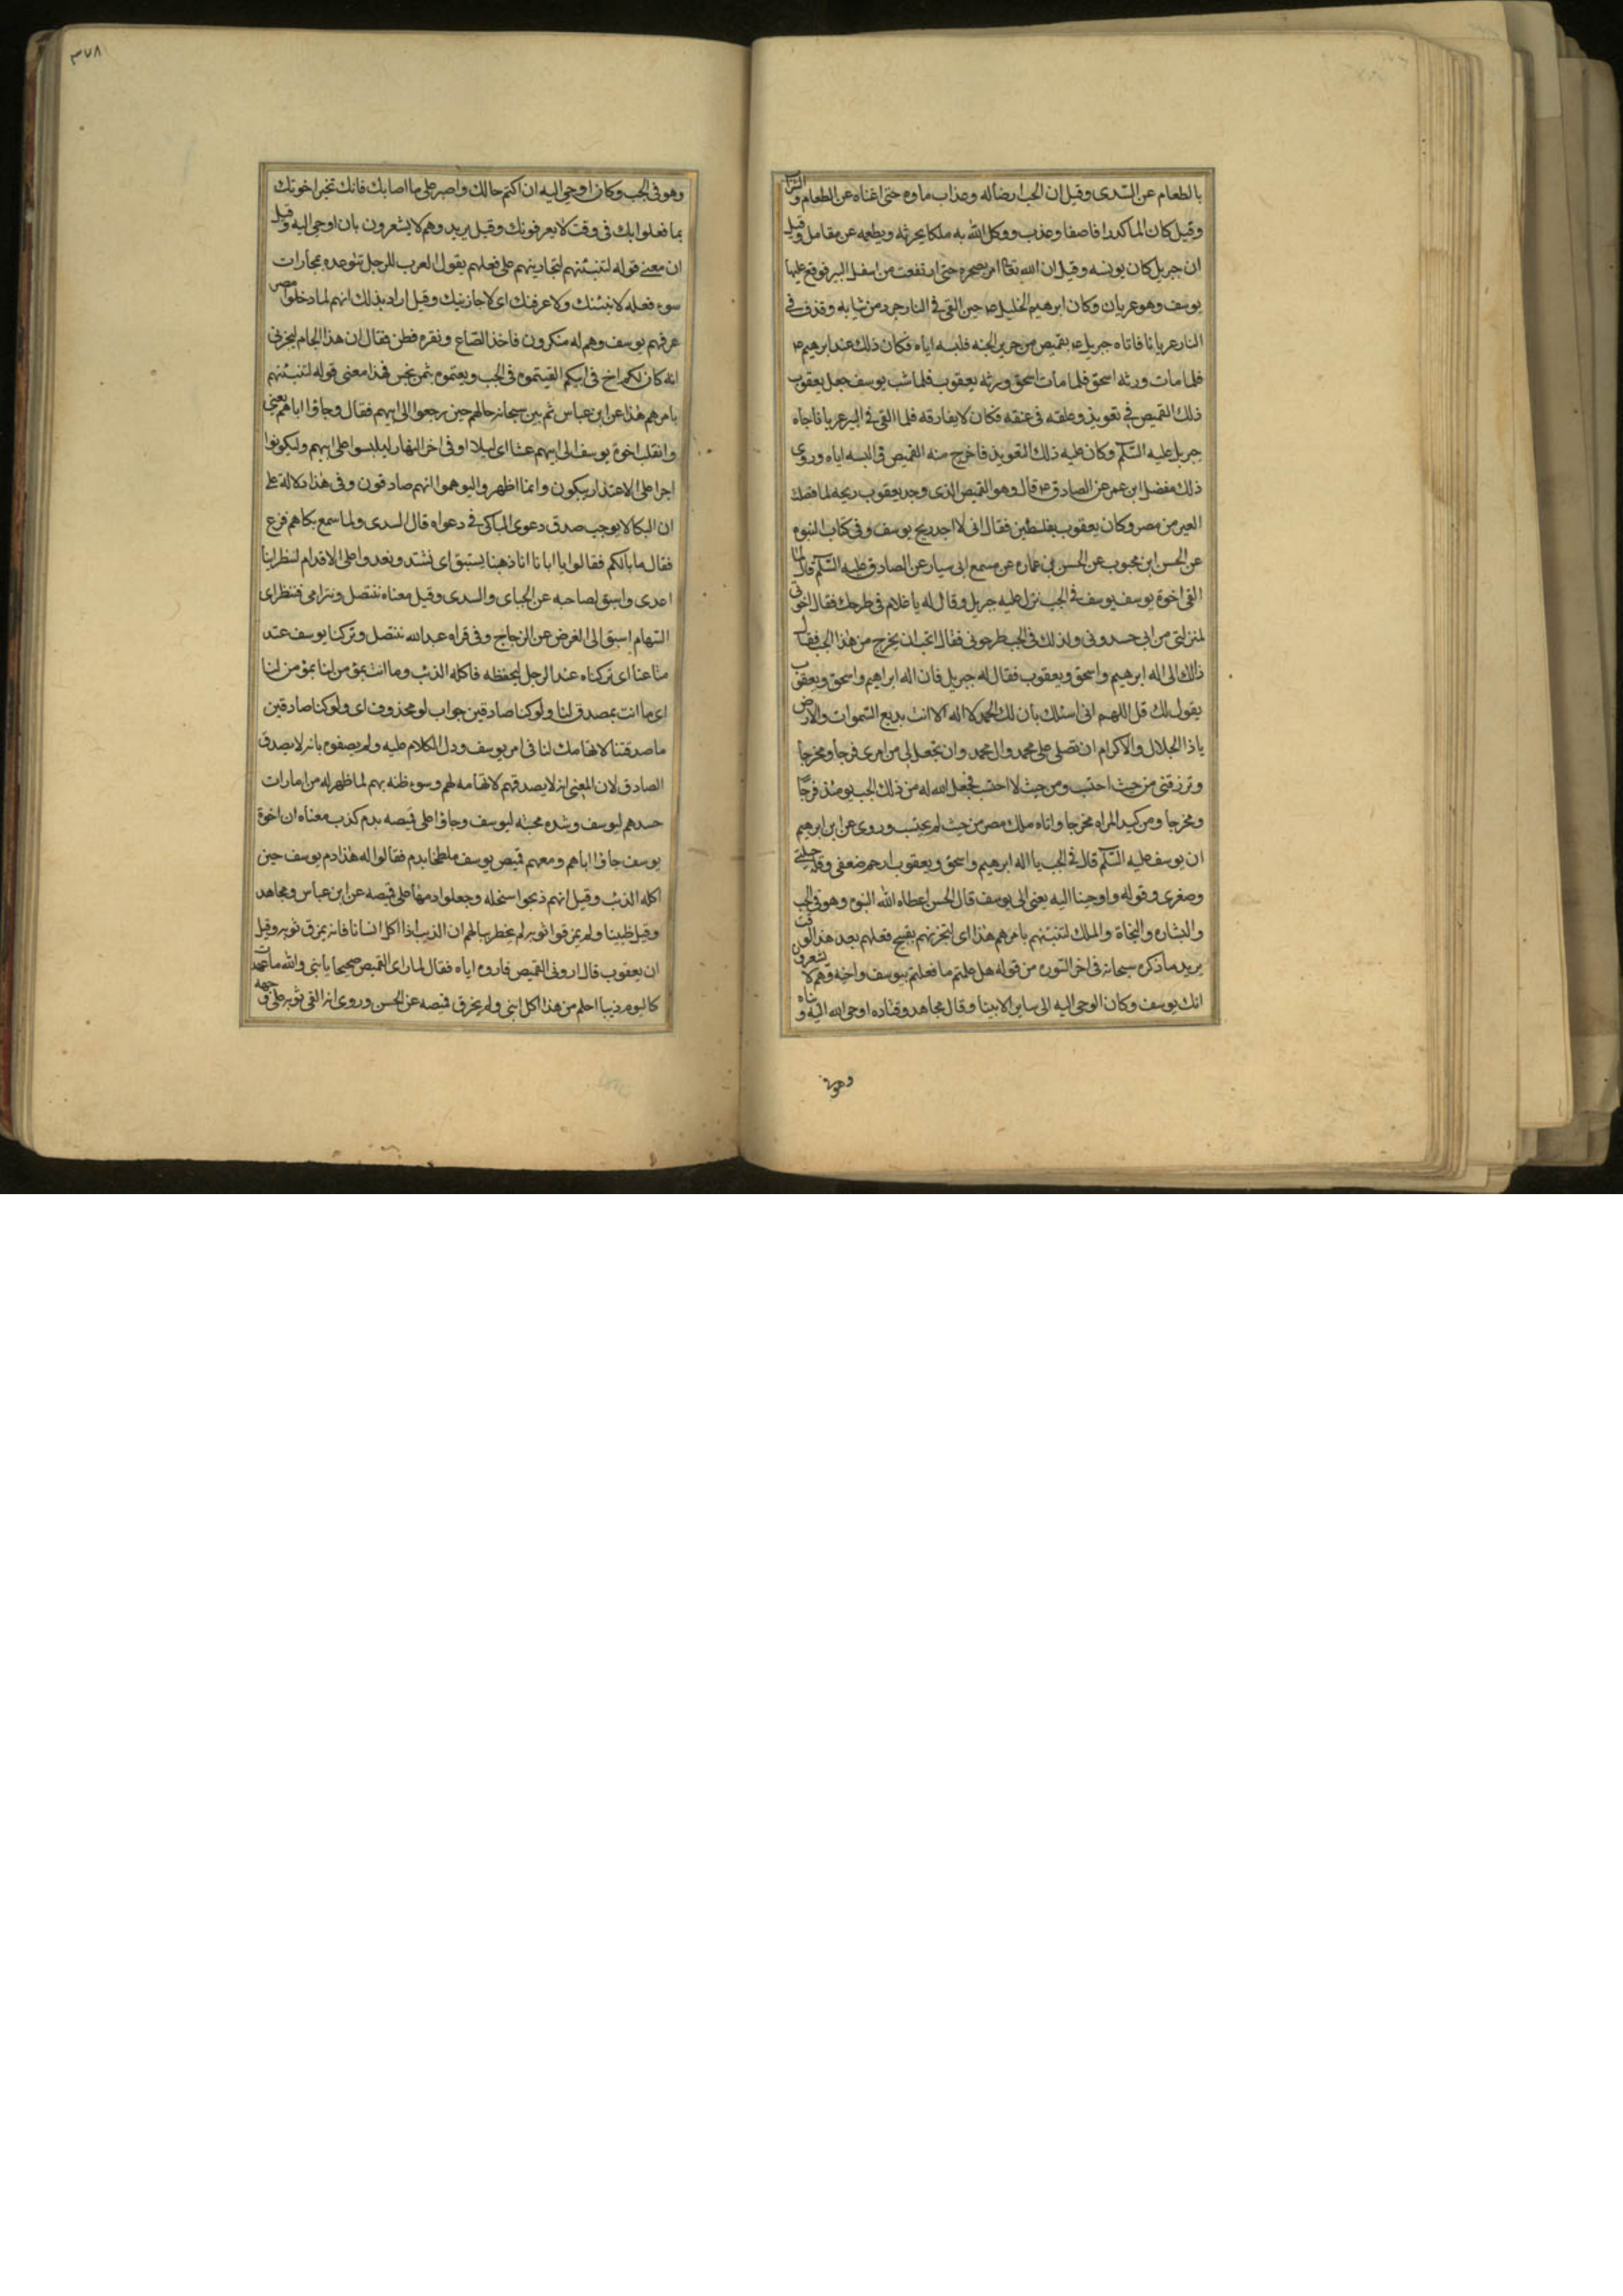 بالطعام عن السدى وقيل ان الجب اضاله وعذاب ماوه حتى اغناه عن الطعام والشراب
وقيل كان الماء كدرا فاصفا وعذب ووكل الله به ملكا يحرثه ويطعمه عن مقاتل وقيل
ان جبريل كان يونسه وقيل ان الله تعالى امر بصخره حتى ارتفعت من اسفل البير فوقع عليها
يوسف وهو عريان وكان ابرهيم الخليل ع حين القى فى النار جرد من ثيابه وقذف فى
النار عريانا فاتاه جبريل ع بقميص من حرير الجنه فلبسه اياه فكان ذلك عند ابرهيم ع
فلما مات ورثه اسحق فلما مات اسحق ورثه يعقوب فلما شب يوسف جعل يعقوب
ذلك القميص فى تعويذ وعلقه فى عنقه فكان لا يفارقه فلما القى فى البير عريانا جاه
جبريل عليه السلم وكان عليه ذلك التعويذ فاخرج منه القميص فالبسه اياه وروى
ذلك مفضل ابن عمر عن الصادق ع قال وهو القميص الذى وجد يعقوب ريحه لما فصلت
العير من مصر وكان يعقوب بفلسطين فقال انى لاجد ريح يوسف وفى كتاب النبوه
عن الحسن ابن محبوب عن الحسن بن عماره عن مسمع ابى سيار عن الصادق عليه السلم قال لما
القى اخوة يوسف يوسف فى الجب نزل عليه جبريل وقال له يا غلام من طرحك فقال اخوتى
لمنزلتى من ابى حسدونى ولذلك فى الجب طرحونى فقال اتحب ان يخرج من هذا الجب فقال
ذالك الى اله ابرهيم واسحق ويعقوب فقال له جبريل فان اله ابراهيم واسحق ويعقوب
يقول لك قل اللهم انى اسئلك بان لك الحمد لا اله الا انت بديع السموات والارض
يا ذا الجلال والاكرام ان تصلى على محمد وال محمد وان تجعل لى من امرى فرجا ومخرجا
وترزقنى من حيث احتسب ومن حيث لا احتسب فجعل الله له من ذلك الجب يومئذ فرجا
ومخرجا ومن كيد المراه مخرجا واتاه ملك مصر من حيث لم يحتسب وروى عن ابن ابرهيم
ان يوسف عليه السلم قال فى الجب يا اله ابرهيم واسحق ويعقوب ارحم ضعفى وقلة حيلتى
وصغرى وقوله واوحينا اليه يعنى الى يوسف قال الحسن اعطاه الله النبوه وهو فى الجب
والبشاره والنجاة والملك لتنبئنهم بامرهم هذا اى لتخبرنهم بقبيح فعلهم بعد هذا الوقت
يريد ما ذكره سبحانه فى اخر السوره من قوله هل علمتم ما فعلتم بيوسف واخيه وهم لا يشعرون
انك يوسف وكان الوحى اليه الى ساير الانبيا وقال مجاهد وقتاده اوحى الله اليه ونباه
وهو فى
٣٧٨
وهو فى الجب وكان اوحى اليه ان اكتم حالك واصبر على ما اصابك فانك تخبر اخوتك
بما فعلوا بك فى وقت لا يعرفونك وقيل يريد وهم لا يشعرون بان اوحى اليه وقيل
ان معنى قوله لتنبئنهم لتجازينهم على فعلهم يقول العرب للرجل تتوعده بمجازات
سوء فعله لانبئنك ولاعرفنك اى لاجازينك وقيل اراد بذلك انهم لما دخلوا مصر
عرفهم يوسف وهم له منكرون فاخذ الصاع ونقره فطن فقال ان هذا الجام ليخبرنى
انه كان لكم اخ فى ابيكم القيتموه فى الجب وبعتموه بثمن بخس فهذا معنى قوله لتنبئنهم
بامرهم هذا عن ابن عباس ثم بين سبحانه حالهم حين رجعوا الى ابيهم فقال وجاؤا اباهم يعنى
وانقلب اخوة يوسف الى ابيهم عشا اى ليلا او فى اخر النهار ليلبسوا على ابيهم وليكونوا
اجرا على الاعتذار يبكون وانما اظهر والبوهموا انهم صادقون وفى هذا دلالة على
ان البكا لا يوجب صدق دعوى الباكى فى دعواه قال السدى ولما سمع بكاهم فزع
فقال ما بالكم فقالوا يا ابانا انا ذهبنا يستبق اى نشتد ونعدوا على الاقدام لننظر اينا
اعدى واسبق لصاحبه عن الجباى والسدى وقيل معناه ننتصل ونترامى فننظر اى
السهام اسبق الى الغرض عن الزجاج وفى قراه عبد الله ننتصل وتركنا يوسف عند
متاعنا اى تركناه عند الرحل ليحفظه فاكله الذئب وما انت بمؤمن لنا بمؤمن لنا
اى ما انت بمصدق لنا ولو كنا صادقين جواب لو محذوف اى ولو كنا صادقين
ما صدقتنا لاتهامك لنا فى امر يوسف ودل الكلام عليه ولم يصفوه بانه لا يصدق
الصادق لان المعنى انه لا يصدقهم لاتهامه لهم وسوء ظنه بهم لما ظهر له من امارات
حسدهم ليوسف وشده محبته ليوسف وجاؤا على قميصه بدم كذب معناه ان اخوة
يوسف جاؤا اباهم ومعهم قميص يوسف ملطخا بدم فقالوا له هذا دم يوسف حين
اكله الذئب وقيل انهم ذبحوا سخله وجعلوا دمها على قميصه عن ابن عباس ومجاهد
وقيل ظبينا ولم يمزقوا ثوبه لم يخطر ببالهم ان الذيب اذا اكل انسانا فانه يمزق ثوبه وقيل
ان يعقوب قال ارونى القميص فاروه اياه فقال لما راى القميص صحيحا يا بنى والله ما عهدت
كاليوم ذيبا احلم من هذا اكل ابنى ولم يخرق قميصه عن الحسن وروى انه القى ثوبه على وجهه